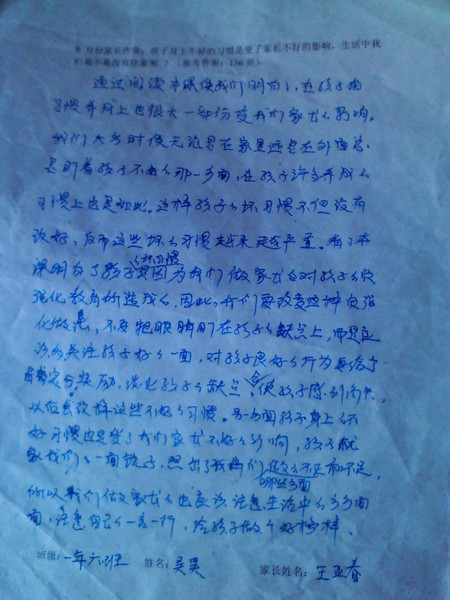 9 月份家长作业：孩子身上不好的习惯是受了家长不好的影响，生活中我
们是不是没有注意呢？（参考答案：136 页）
通过阅读本课使我们明白了，在孩子的
习惯养成上也很大一部份受我们家长的影响。
我们大多时候无论是在家里还是在外面总
是盯着孩子不好的那一方面，在孩子许多养成的
习惯上也是如此。这样孩子的坏习惯不但没有
改好，反而这些坏的习惯越来越严重。看了本
课明白了孩子坏习惯是因为我们做家长的对孩子的负
强化教育所造成的，因此，我们要改变这种负强
化做法，不要把眼睛盯在孩子的缺点上，而是应
该多关注孩子好的一面，对孩子良好的行为要给予
肯定和奖励，淡化孩子的缺点，会使孩子感到
以后会改掉这些不好的习惯。另一方面孩子身上的不
好习惯也是受了我们家长不好的影响，孩子就
象我们的一面镜子，照出了我们做的不正和不足，
哪些方面
所以我们做家长的也应该注意生活中的方方面
面，注意自己的一言一行，给孩子做个好榜样。
班级：一年六班 姓名：吴昊 家长姓名：王亚春